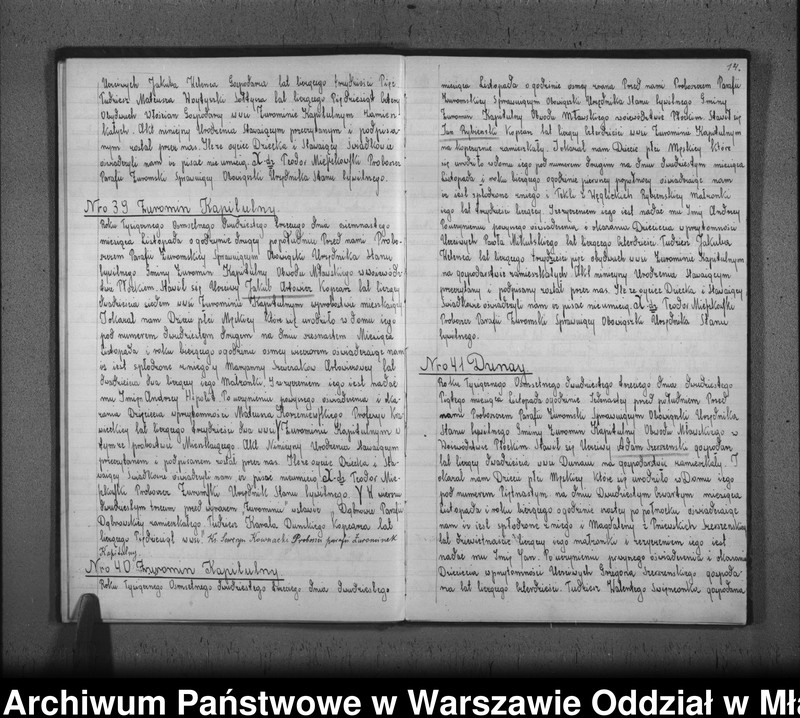 Uczciwych Jakuba Helenca Gospodarza lat liczącego trzydzieści Pięć
Tudzież Mateusza Wojtyrski Sołtysa lat liczącego Pięćdziesiąt Cztery
Obydwuch Włościan Gospodarzy wsi Żurominie Kapitulnym Zamiesz-
kałych. Akt niniejszy Urodzenia Stawaiącym przeczytanym i podpisa-
nym został przez nas. Że zaś oyciec Dziecka i Stawaiący Świadkowie
oświadczyli nam iż pisać nie umieią. X dz Teodor Mieszkoffki Proboszcz
Parafii Żuromski Sprawuiący Obowiązki Urzędnika Stanu Cywilnego.
Nro 39 Żuromin Kapitulny
Roku Tysiącznego Ośmsetnego Dwudziestego trzeciego Dnia siemnastego
miesiąca Listopada o godzinie drugiey popołudniu Przed nami Probo-
szczem Parafii Żuromskiey Sprawuiącym Obowiązki Urzędnika Stanu
Cywilnego Gminy Żuromin Kapitulny Obwodu Mławskiego w Wojewodz-
twie Płockim. Stawił się Uczciwy Jakub Kopcarz lat liczący
dwadzieścia siedem wsi Żurominie Kapitulnym w probostwie mieszkaiący
I okazał nam Dziecie płci Męzkiey które się urodziło w Domu iego
pod numerem Dwudziestym drugim na dniu szesnastem Miesiąca
Listopada i roku bieżącego o godzinie osmey wieczorem oświadczaiąc nam
iż iest spłodzone z niego y Maryanny lat
dwadzieścia dwa liczący iego Małżonki. I życzeniem iego iest nadać
mu Imię Andrzey Hipolit Po uczynieniu powyższego oświadczenia i oka-
zania Dziecięcia w przytomności Mateusza Profesyi Kra-
wieckiey lat liczącego trzydzieści dwa wsi V Żurominie Kapitulnym w
tymże probostwie Mieszkaiącego. Akt Niniejszy Urodzenia Stawaiącym
przeczytanem i podpisanem został przez nas. Że zaś oyciec Dziecka i Sta-
waiący Świadkowie oświadczyli nam iż pisać nieumieią X dz Teodor Mie-
szkoffki Proboszcz Żuromski Urzędnik Stanu Cywilnego. V W wierszu
dwudziestym trzecim przed wyrazem Żurominie wstawić Dąbrowa Parafii
Dąbrowskiey zamieszkałego Tudzież Karola Dunskiego Kopcarza lat
liczącego Pięćdziesiąt wsi.
Kapitulny.
Nro 40 Żuromin Kapitulny
Roku Tysiącznego Ośmsetnego Dwudziestego trzeciego Dnia Dwudziestego
14.
miesiąca Listopada o godzinie osmey zrana Przed nami Proboszczem Parafii
Żuromskiey Sprawuiącym Obowiązki Urzędnika Stanu Cywilnego Gminy
Żuromin Kapitulny Obwodu Mławskiego województwie Płockim. Stawił się
Jan Rybienski Kopcarz lat liczący czterdzieści wsi Żurominie Kapitulnym
na kopczyznie zamieszkały. I okazał nam Dziecie płci Męzkiey które
się urodziło w domu iego pod numerem drugim na dniu dwudziestym miesiąca
Listopada i roku bieżącego o godzinie pierwszey popułnocy oświadczaiąc nam
iż iest spłodzone z niego i Tekli z Węglickich Rybienskiey Małżonki
iego lat trzydzieści liczący. I życzeniem iego iest nadać mu Imię Andrzey
Po uczynieniu powyższego oświadczenia, i okazaniu Dziecięcia w przytomności
Uczciwych Pawła Mikulskiego lat liczącego czterdzieści Tudzież Jakuba
Helenca lat liczącego trzydzieści pięć obydwuch wsi Żurominie Kapitulnym
na gospodarstwie zamieszkałych Akt niniejszy Urodzenia Stawaiącym
przeczytany i podpisany został przez nas. Że zaś oyciec Dziecka i Stawaiący
Świadkowie oświadczyli nam iż pisać nie umieią. X dz Teodor Mieszkoffki
Proboszcz Parafii Żuromski Sprawuiący Obowiązki Urzędnika Stanu
Cywilnego.
Nro 41 Dunay
Roku Tysiącznego Ośmsetnego Dwudziestego trzeciego Dnia Dwudziestego
Piątego miesiąca Listopada o godzinie Jedenastey przed południem Przed
nami Proboszczem Parafii Żuromski Sprawuiącym Obowiązki Urzędnika
Stanu Cywilnego Gminy Żuromin Kapitulny Obwodu Mławskiego w
Województwie Płockim. Stawił się Uczciwy Adam gospodarz
lat liczący dwadzieścia wsi Dunaiu na gospodarstwie zamieszkały. I
okazał nam Dziecie płci Męzkiey, które się urodziło w Domu iego
pod numerem Piętnastym na dniu Dwudziestym czwartym miesiąca
Listopada i roku bieżącego o godzinie szóstey po północku oświadczaiąc
nam iż iest spłodzone z niego i Magdaleny z
lat dziewietnaście liczący iego małżonki i życzeniem iego iest
nadać mu Imię Jan. Po uczynieniu powyższego oświadczenia i okazania
Dziecięcia w przytomności Uczciwych Grzegorza gospoda-
rza lat liczącego czterdzieści. Tudzież Walentego gospodarza
Archiwum Państwowe w Warszawie Oddział w Mła